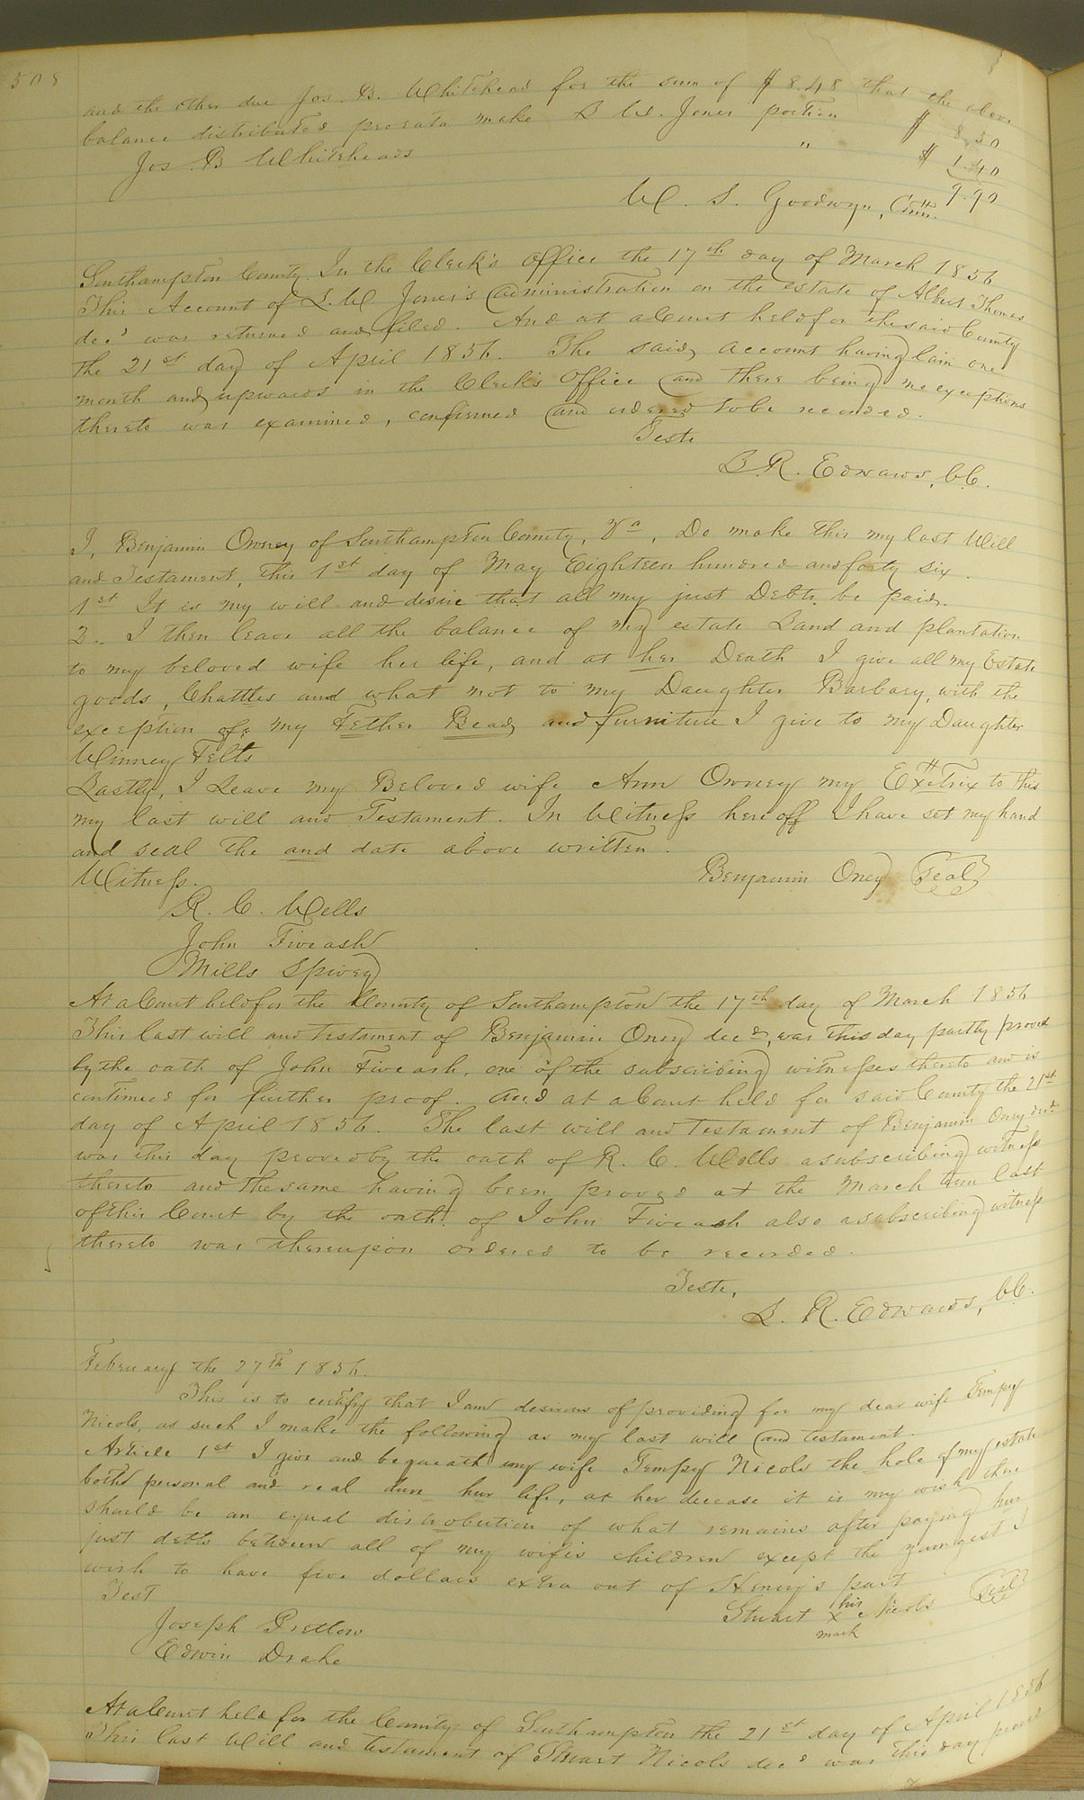 508
and the other due Jos. B. Whitehead for the sum of $ 8.48 that the above
balance distributed prorata make L W. Jones portion $ 8.50
Jos. B Whiteheads " $ 1.40
9.90
W. S. Goodwyn, Com.
Southampton County. In the Clerk's Office the 17th day of March 1856
This Account of L. W Jones's administration on the estate of Albert Thomas
decd was returned and filed. And at a Court held for the said County
the 21st day of April 1856. The said account having lain one
month and upwards in the Clerk's Office and there being no exceptions
thereto was examined, confirmed and ordered to be recorded.
Teste
L. R. Edwards, C.C.
I, Benjamin Owney of Southampton County, Va, Do make this my last Will
and Testament, this 1st day of May Eighteen hundred and forty six.
1st It is my will and desire that all my just Debts be paid.
2. I then leave all the balance of my estate Land and plantation
to my beloved wife her life, and at her Death I give all my Estate
goods, Chattles and what not to my Daughter Barbary, with the
exception of my Fether Bead and furniture I give to my Daughter
Winney Felts
Lastly, I Leave my Beloved wife Ann Owney my Exetrix to this
my last will and Testament. In Witness hereoff I have set my hand
and seal the and date above written.
Witness. Benjamin Oney Seal
R. C. Wells
John Fiveash
Mills Spivey
At a Court held for the County of Southampton the 17th day of March 1856
This last will and testament of Benjamin Oney decd, was this day partly proved
by the oath of John Fiveash, one of the subscribing witnesses thereto and is
continued for further proof. And at a Court held for said County the 21st
day of April 1856. The last will and testament of Benjamin Oney decd
was this day proved by the oath of R. C. Wells a subscribing witness
thereto and the same having been proved at the March term last
of this Court by the oath of John Fiveash also a subscribing witness
thereto was thereupon ordered to be recorded.
Teste,
L. R. Edwards, C.C.
February the 27th 1856.
This is to certify that I am desirous of providing for my dear wife Tempy
Nicols, as such I make the following as my last will and testament.
Article 1st I give and bequeath my wife Tempy Nicols the hole of my estate
both personal and real durn hur life, at her decease it is my wish there
should be an equal distrobution of what remains after paying hur
just debts between all of my wifes children except the youngest I
wish to have five dollars extra out of Henry's part
Test Stuart his x mark Nicols Seal
Joseph Pretlow
Edwin Drake
At a Court held for the County of Southampton the 21st day of April 1856
This last Will and testament of Stuart Nicols decd was this day proved